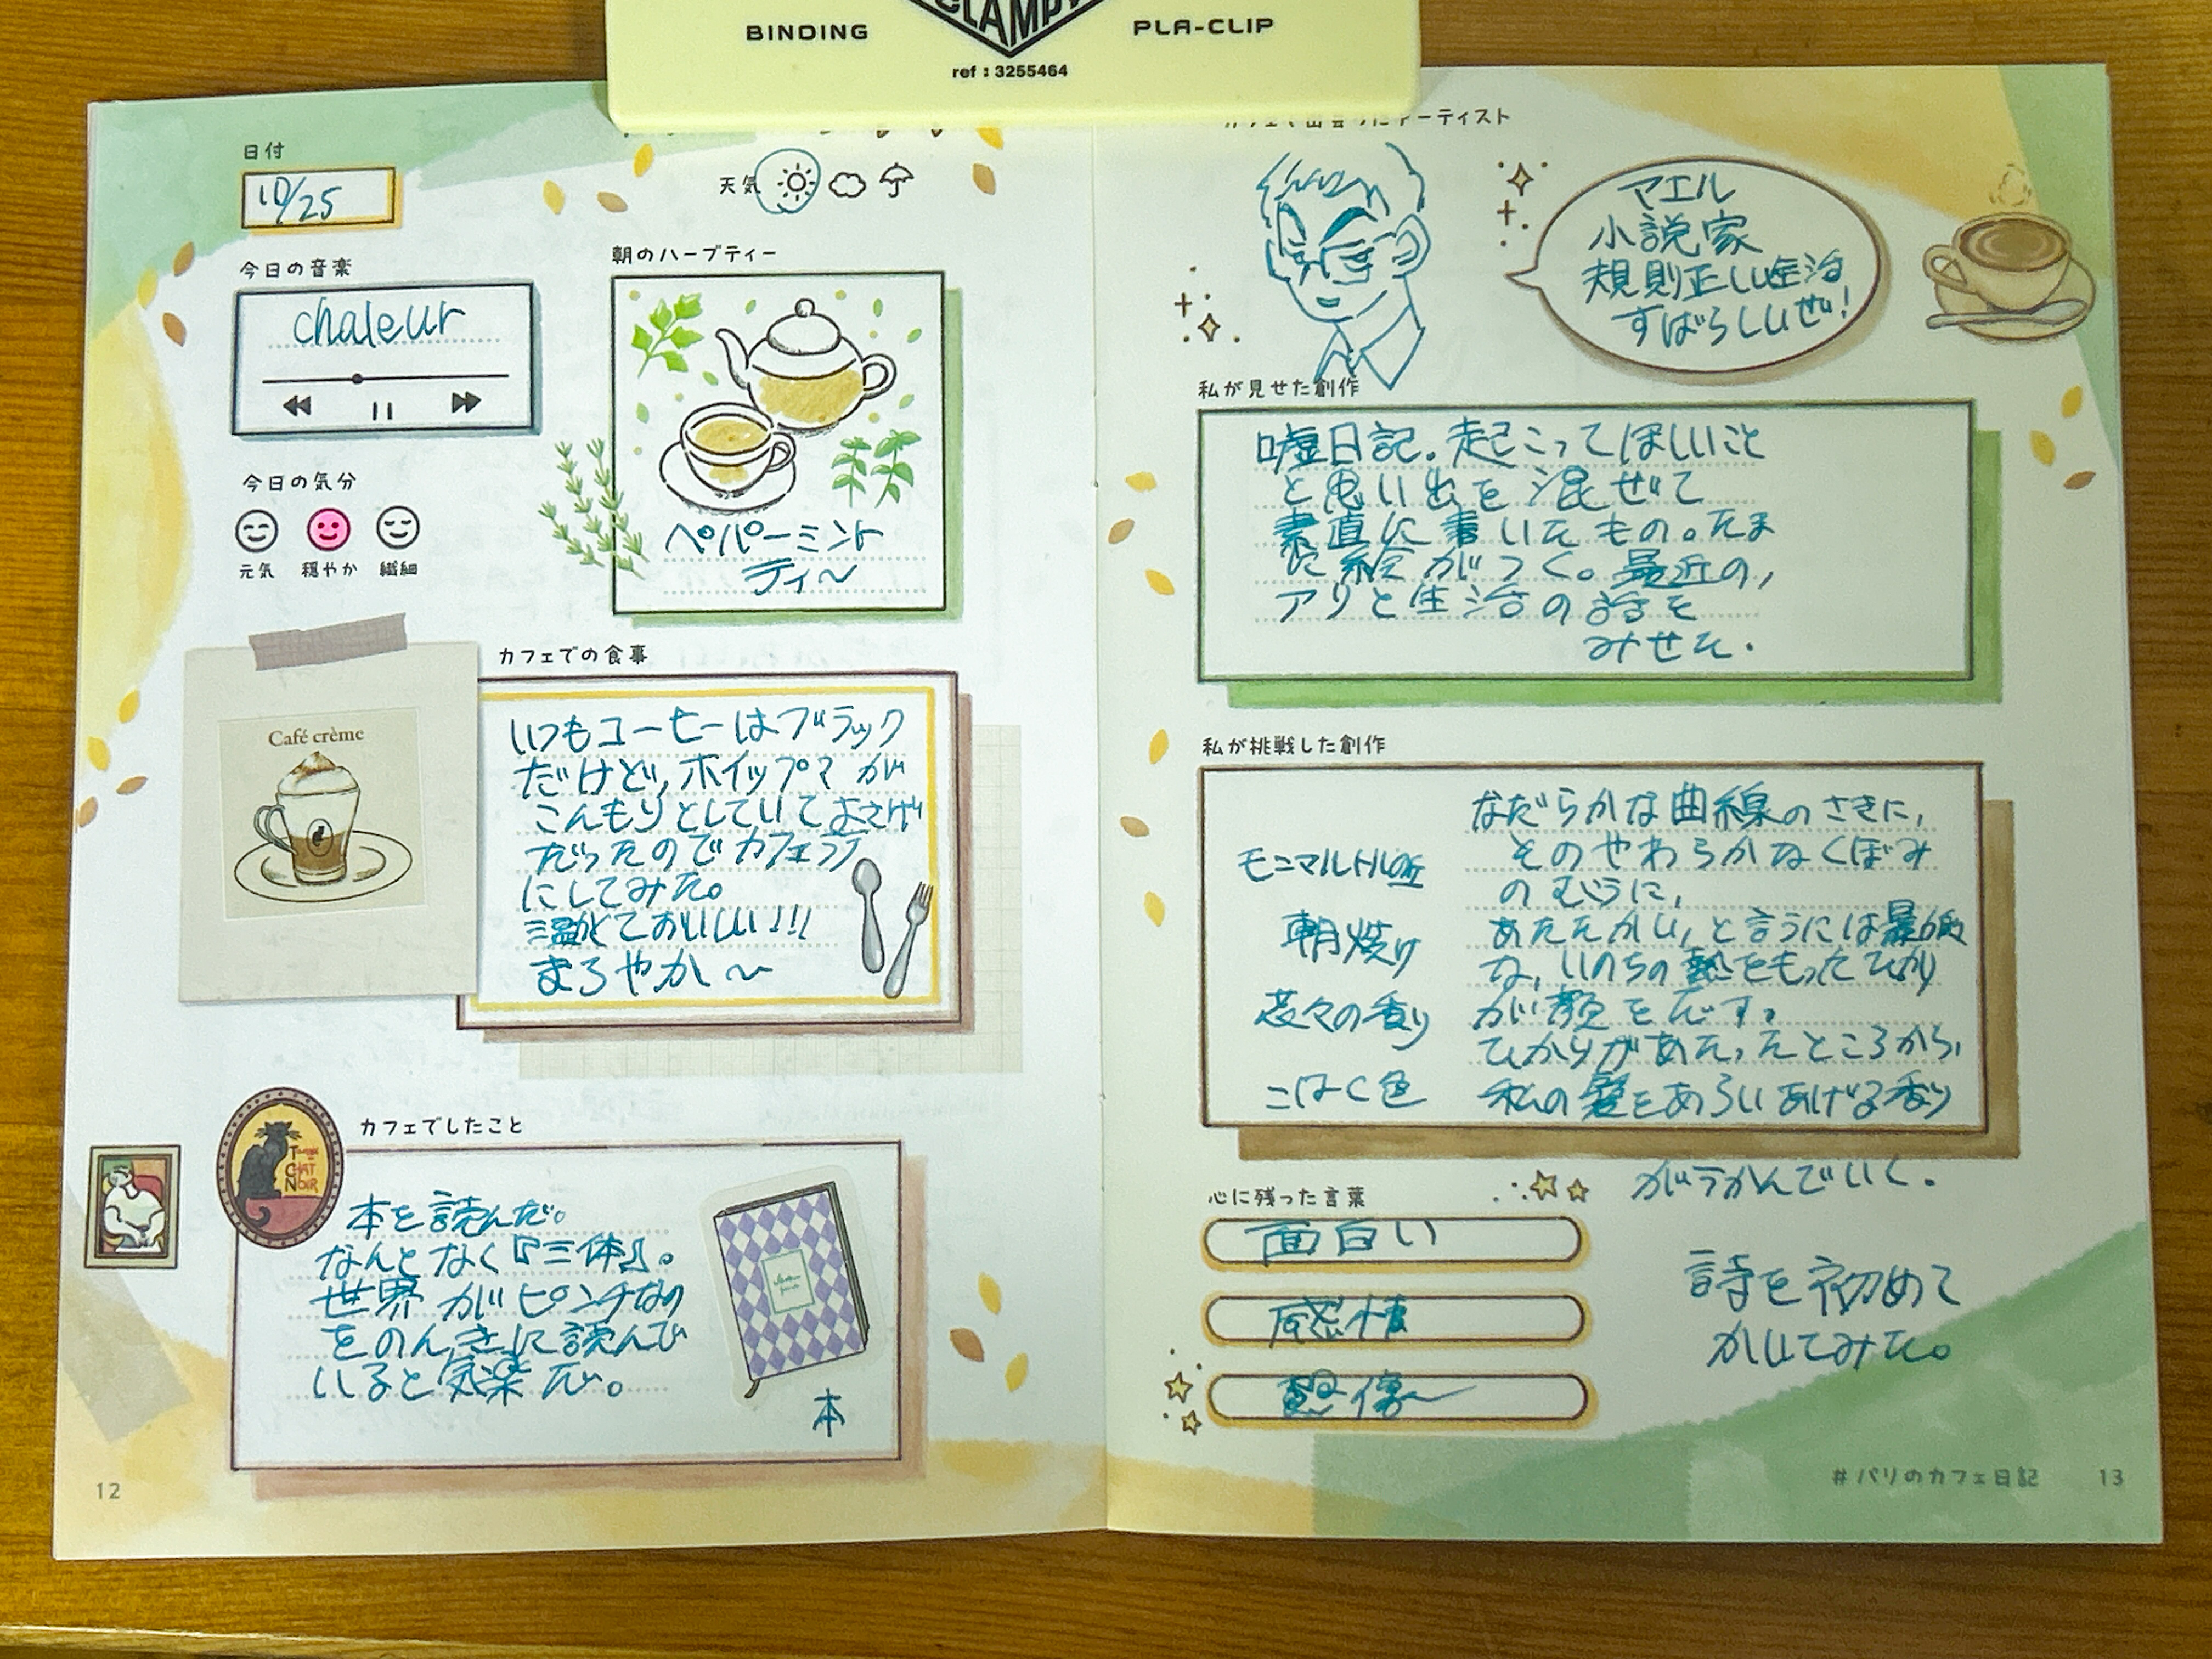 BINDING
CLAMPY
PLA-CLIP
ref : 3255464
日付
10/25
天気
今日の音楽
chaleur
朝のハーブティー
ペパーミント
ティ〜
今日の気分
元気 穏やか 繊細
カフェでの食事
Café crème
いつもコーヒーはブラック
だけど、ホイップが
こんもりとしていてよさげ
だったのでカフェラテ
にしてみた。
温かくておいしい!!!
まろやか〜
カフェでしたこと
CHAT
NOIR
本を読んだ。
なんとなく『三体』。
世界がピンチなの
をのんきに読んで
いると気楽だ。
本
12
カフェで出会ったアーティスト
マエル
小説家
規則正しい生活
すばらしいぜ!
私が見せた創作
嘘日記。起こってほしいこと
と思い出を混ぜて
素直に書いたもの。たま
に絵がつく。最近の,
アリと生活の話を
みせた.
私が挑戦した創作
モンマルトルの丘
朝焼け
花々の香り
こはく色
なだらかな曲線のさきに,
そのやわらかなくぼみ
のむこうに,
あたたかい,と言うには最低
な,いのちの熱をもったひかり
が顔をだす。
ひかりがあたったところから,
私の髪をあらいあげる香り
がうかんでいく.
心に残った言葉
面白い
感情
想像〜
詩を初めて
かいてみた。
#パリのカフェ日記 13